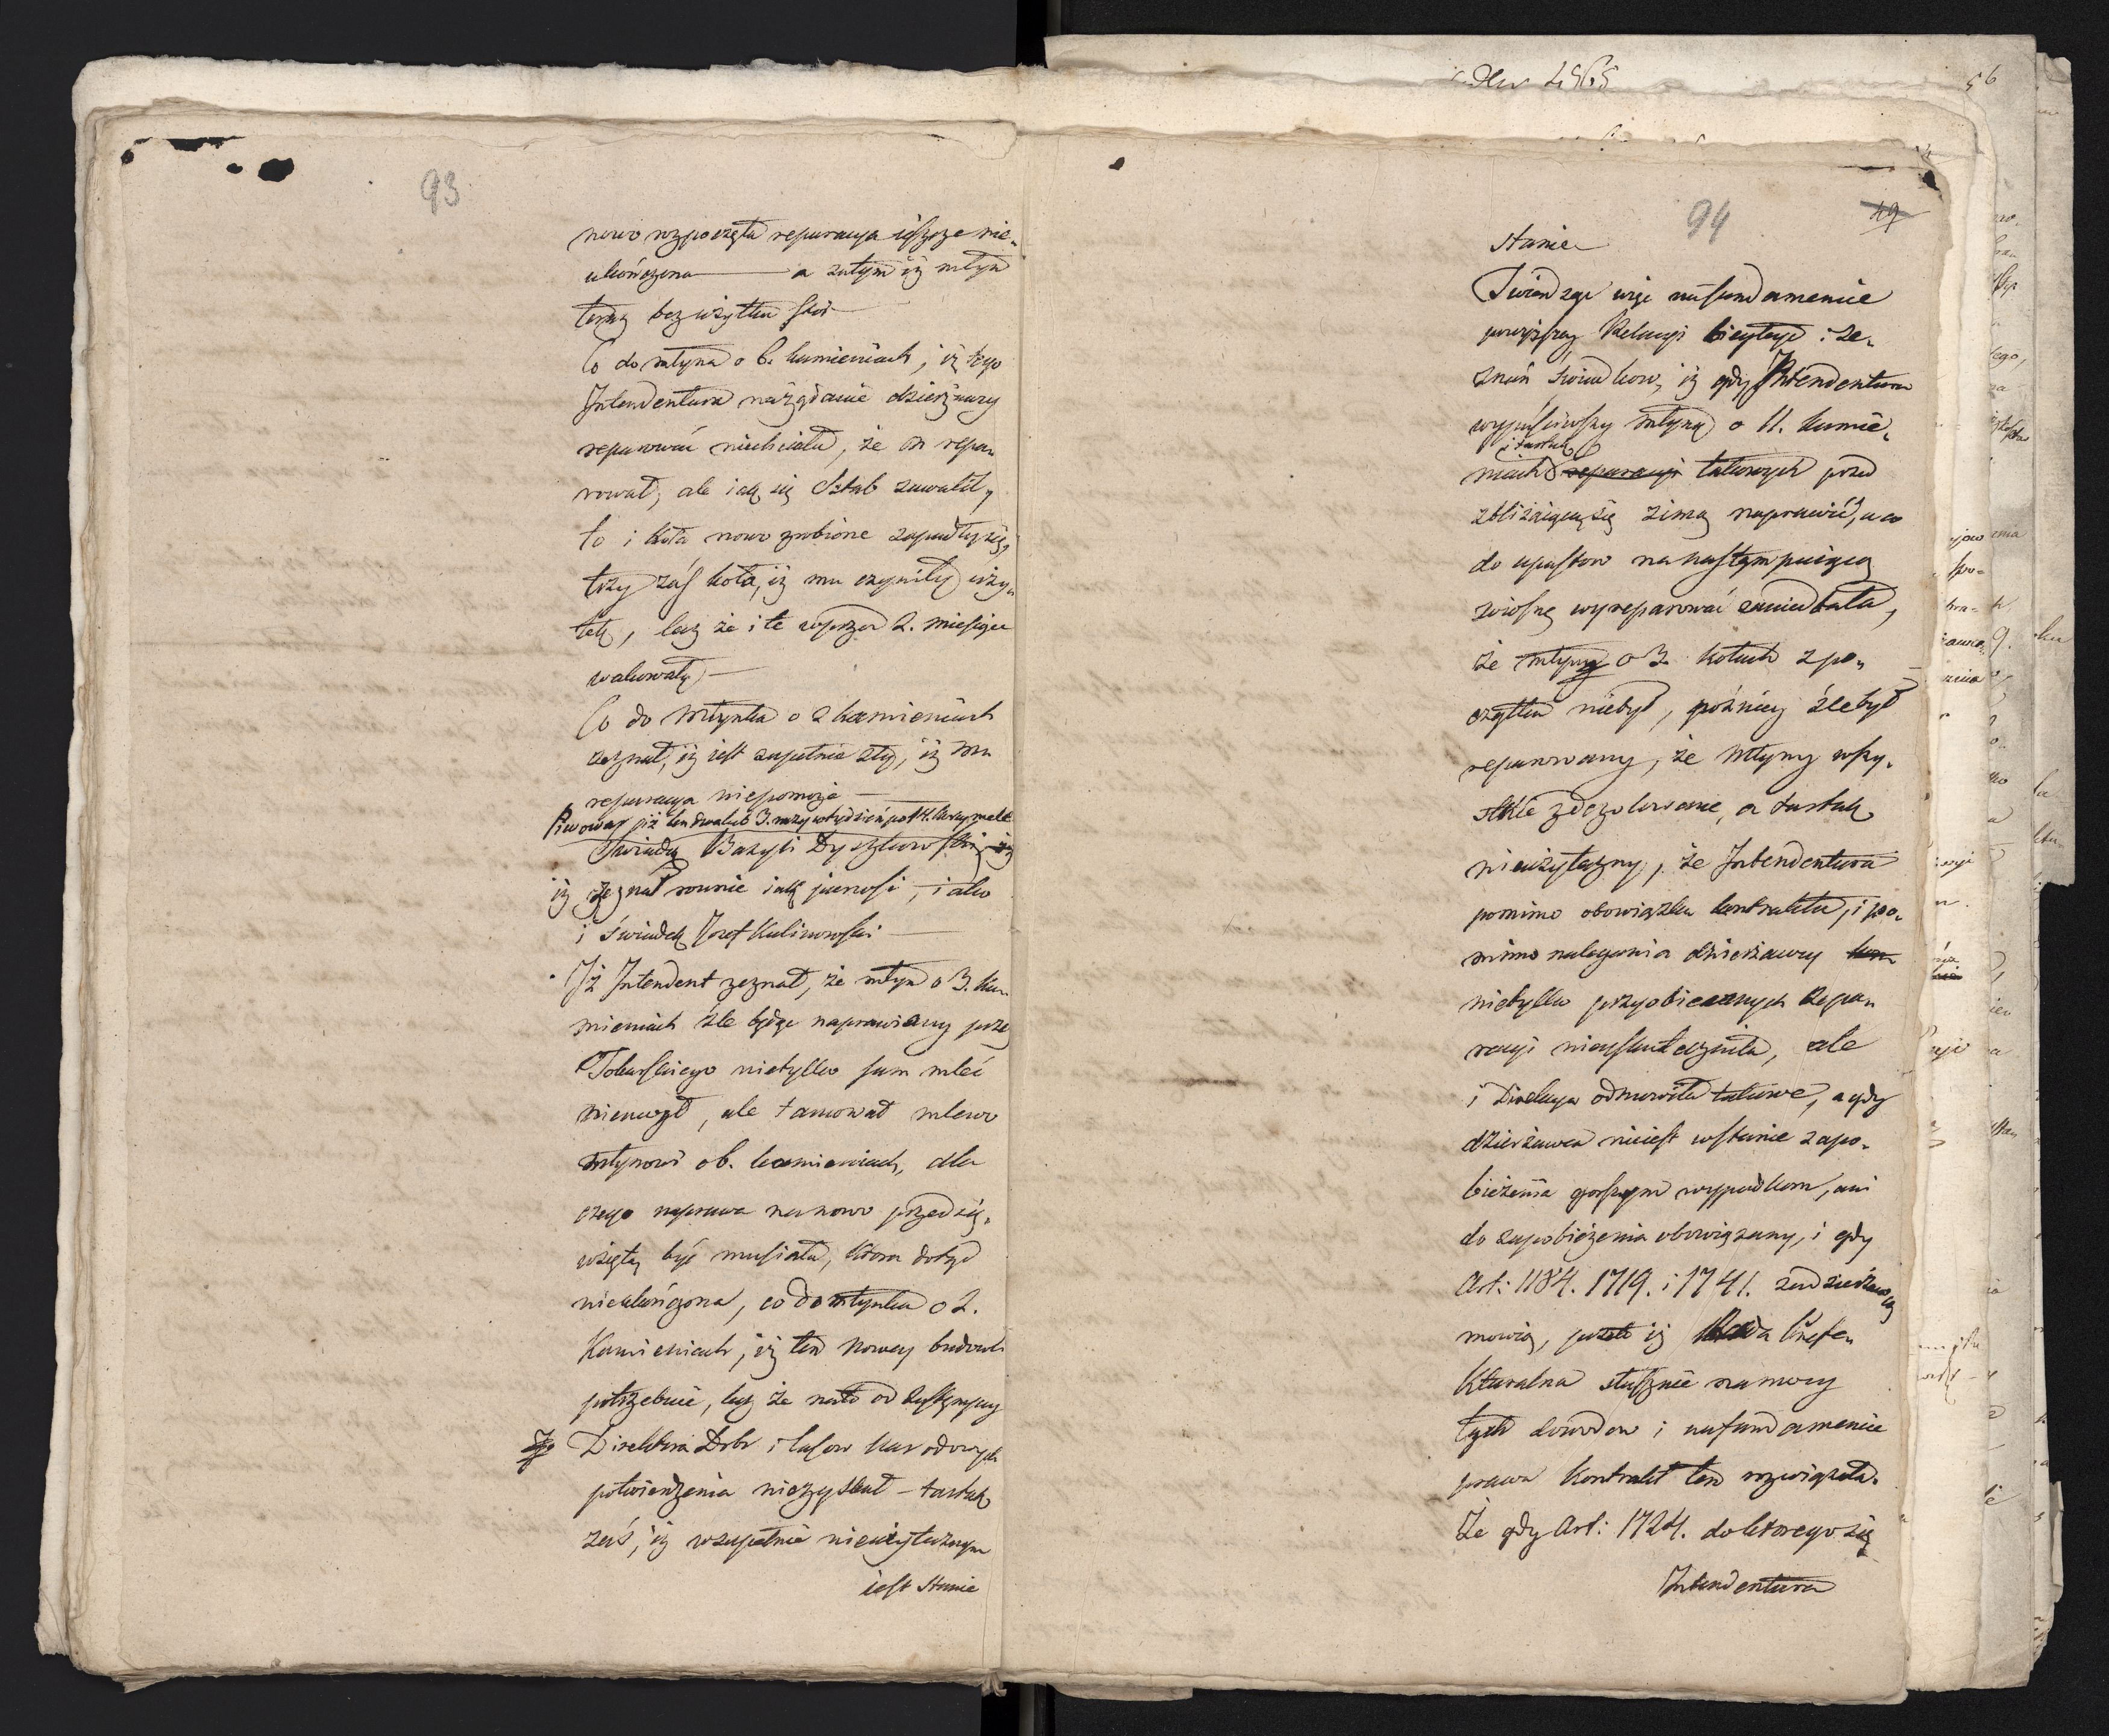 93
nowo rozpoczęta reparacya ieszcze nie„
ukończona — a zatym iż młyn
teraz bez użytku stoi —
Co do młyna o 6. kamieniach, iż tego
Intendentura na żądanie dzierżawcy
reparować niechciała, że on repa„
rował, ale iak się Sztab zawalił,
to i koła nowo zrobione zapadły się,
trzy zaś koła, iż mu czyniły uży„
tek, lecz że i te wprzód 2. miesiące
wakowały —
Co do Młynka o 2 kamieniach
zeznał, iż iest zupełnie zły, iż mu
reparacya niepomoże —
Piwowar iż dwa lub 3. razy w tydzień po 14. korcy mełł
Świadek Bazyli Dyszkowski
iż zeznał rownie iak , i ako
i świadek Jozef Kulikowski —
Iż Intendent zeznał, że młyn o 3. ka„
mieniach źle będąc naprawiany przez
Tokarskiego nietylko sam mleć
niemógł, ale tamował mlewo
młynowi o 6. kamieniach, dla
czego naprawa na nowo przedsię„
wzięta być musiała, ktora dotąd
nieukończona, co do młynka o 2.
Kamieniach, iż ten nowey budowli
potrzebuie, lecz że na to od Zastępcy
Direktora Dobr i lasow Narodowych
potwierdzenia niezyskał – tartak
zaś, iż w zupełnie nieużytecznym
iest Stanie
Dew 1565
56
94
49
Stanie
Twierdząc więc na fundamencie
powyższey Relacyi bieyłych i ze„
znań świadkow, iż gdy Intendentura
wypuściwszy młyny o 11. kamie„
niach i tartak reparacyi takowych przed
zbliżaiącą się zimą naprawić, a co
do upustow na następuiącą
wiosnę wyreparować zaniedbała,
że młyn o 3. kołach z po„
czątku niebył, późniey źle był
reparowany, że Młyny wszy„
stkie zdezolowane, a tartak
nieużyteczny, że Intendentura
pomimo obowiązku kontraktu, i po„
mimo nalegania dzierżawcy
nietylko przyobiecanych Repa„
racyi nieuskuteczniła, ale
i Direkcya odmowiła takowe, a gdy
dzierżawca nieiest w stanie zapo„
bieżenia gorszym wypadkom, ani
do zapobieżenia obowiązany, i gdy
Art: 1184. 1719. i 1741. za dzierżawcą
mowią, przeto iż Rada Prefe„
kturalna słusznie na mocy
tych dowodow i na fundamencie
prawa Kontrakt ten rozwiązała.
Że gdy Art: 1724. do ktorego się
Intendentura